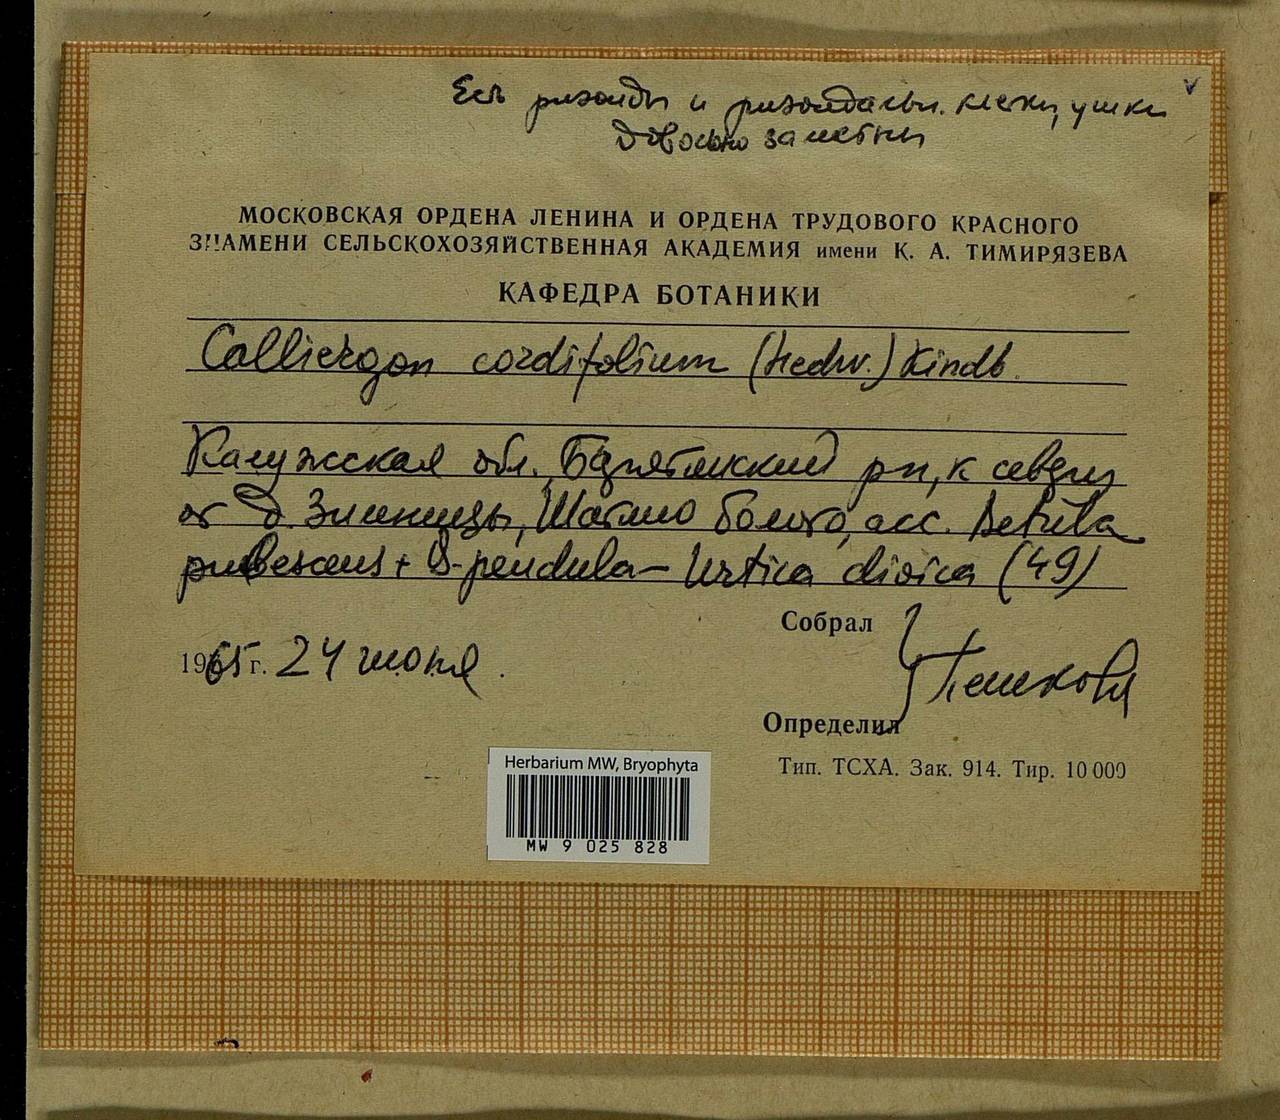 Есть ризоиды и ризоидальн. клетки, ушки
довольно заметны
v
МОСКОВСКАЯ ОРДЕНА ЛЕНИНА И ОРДЕНА ТРУДОВОГО КРАСНОГО
ЗНАМЕНИ СЕЛЬСКОХОЗЯЙСТВЕННАЯ АКАДЕМИЯ имени К. А. ТИМИРЯЗЕВА
КАФЕДРА БОТАНИКИ
Calliergon cordifolium (Hedw.) Kindb.
Калужская обл., Барятинский рн, к северу
от д. Зимницы, Шатино болото, асс. Betula
pubescens + B. pendula – Urtica dioica (49)
Собрал
1965 г. 24 июня.
Пешкова
Определил
Тип. ТСХА. Зак. 914. Тир. 10 000
Herbarium MW, Bryophyta
MW 9 025 828